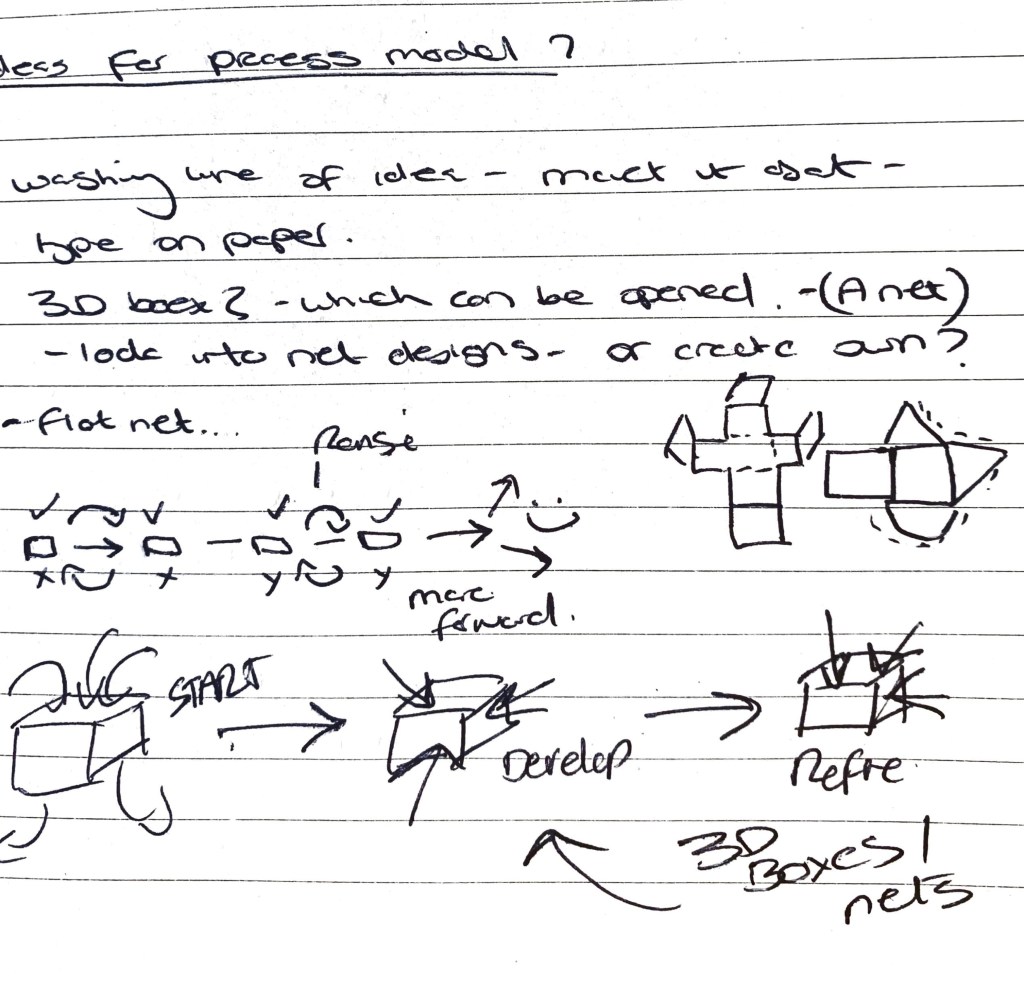 deas for process model ?
washing line of idea - mark it out -
type on paper.
3D boex? - which can be opened. - (A net)
- look into net designs - or create own?
- flat net...
✓ ✓ ✓ ✓
x x y y
move
forward.
START
Develop
Refine
3D
BOXES!
nets